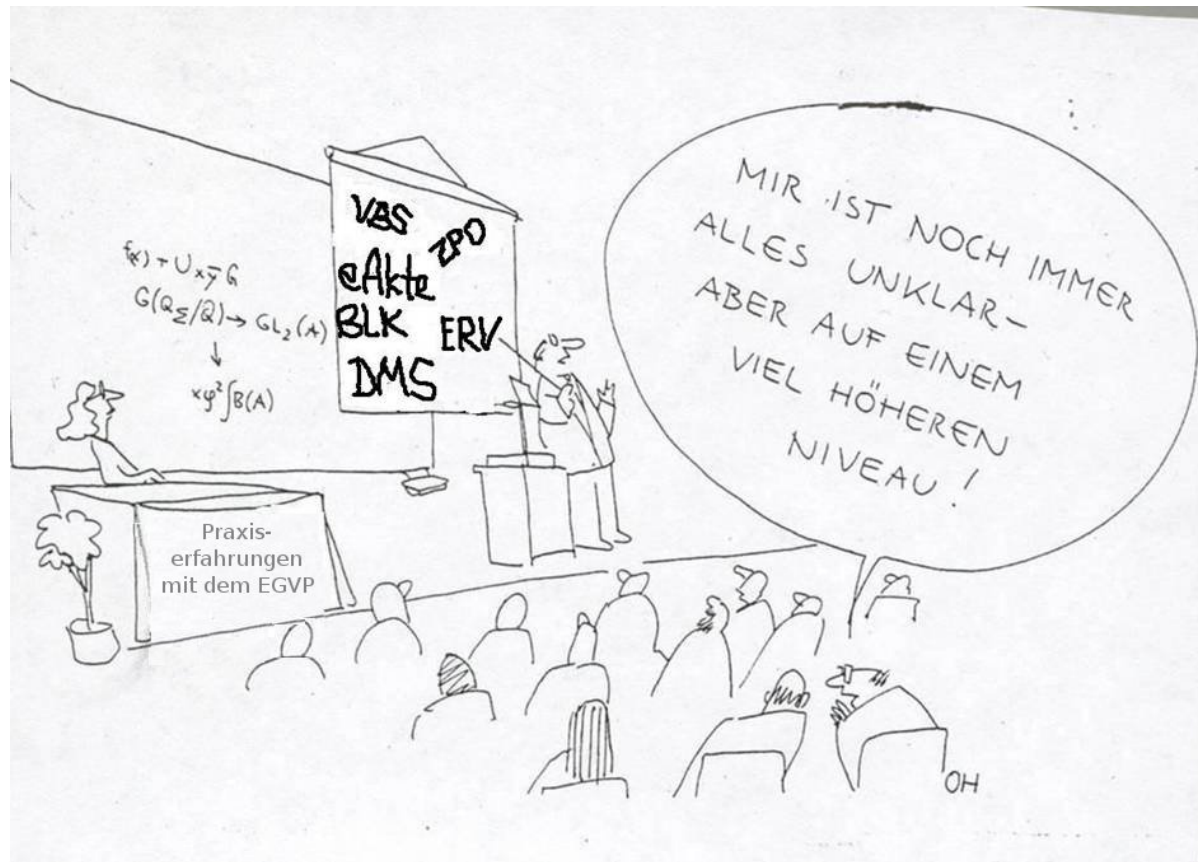 f(x) + U x 7 G
G(Q_Σ/Q) → GL₂(A)
↓
xφ²∫B(A)
VBS
ZPO
eAkte
BLK
ERV
DMS
MIR IST NOCH IMMER
ALLES UNKLAR –
ABER AUF EINEM
VIEL HÖHEREN
NIVEAU!
Praxis-
erfahrungen
mit dem EGVP
OH